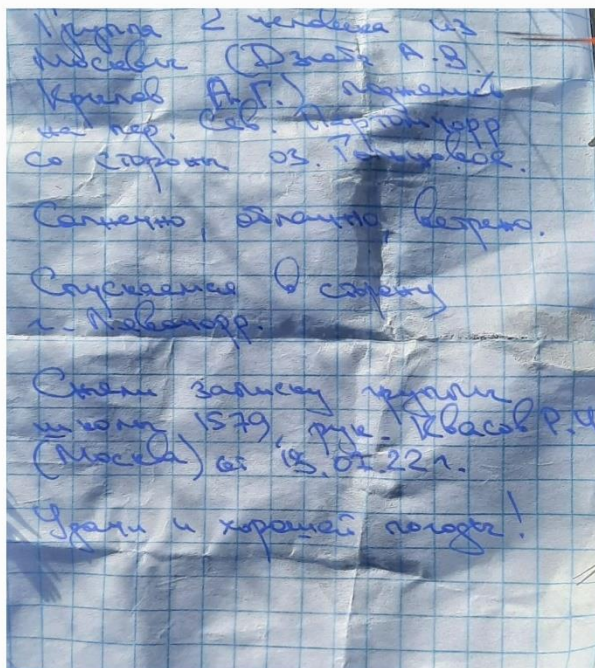 Группа 2 человека из
Москвы (Дзюба А.В.
Крылов А.Г.) поднялись
на пер. Сев. Партомчорр
со стороны оз. Гольцовое.
Солнечно, облачно, ветрено.
Спускаемся в сторону
г. Лявочорр.
Сняли записку группы
школы 1579, рук. Квасов Р.
(Москва) от 07.22 г.
Удачи и хорошей погоды!